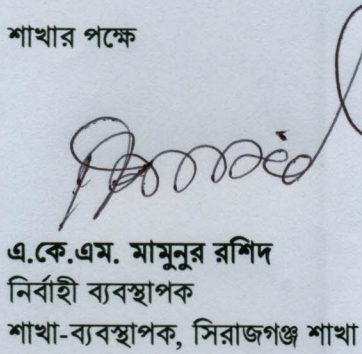 শাখার পক্ষে
এ.কে.এম. মামুনুর রশিদ
নির্বাহী ব্যবস্থাপক
শাখা-ব্যবস্থাপক, সিরাজগঞ্জ শাখা